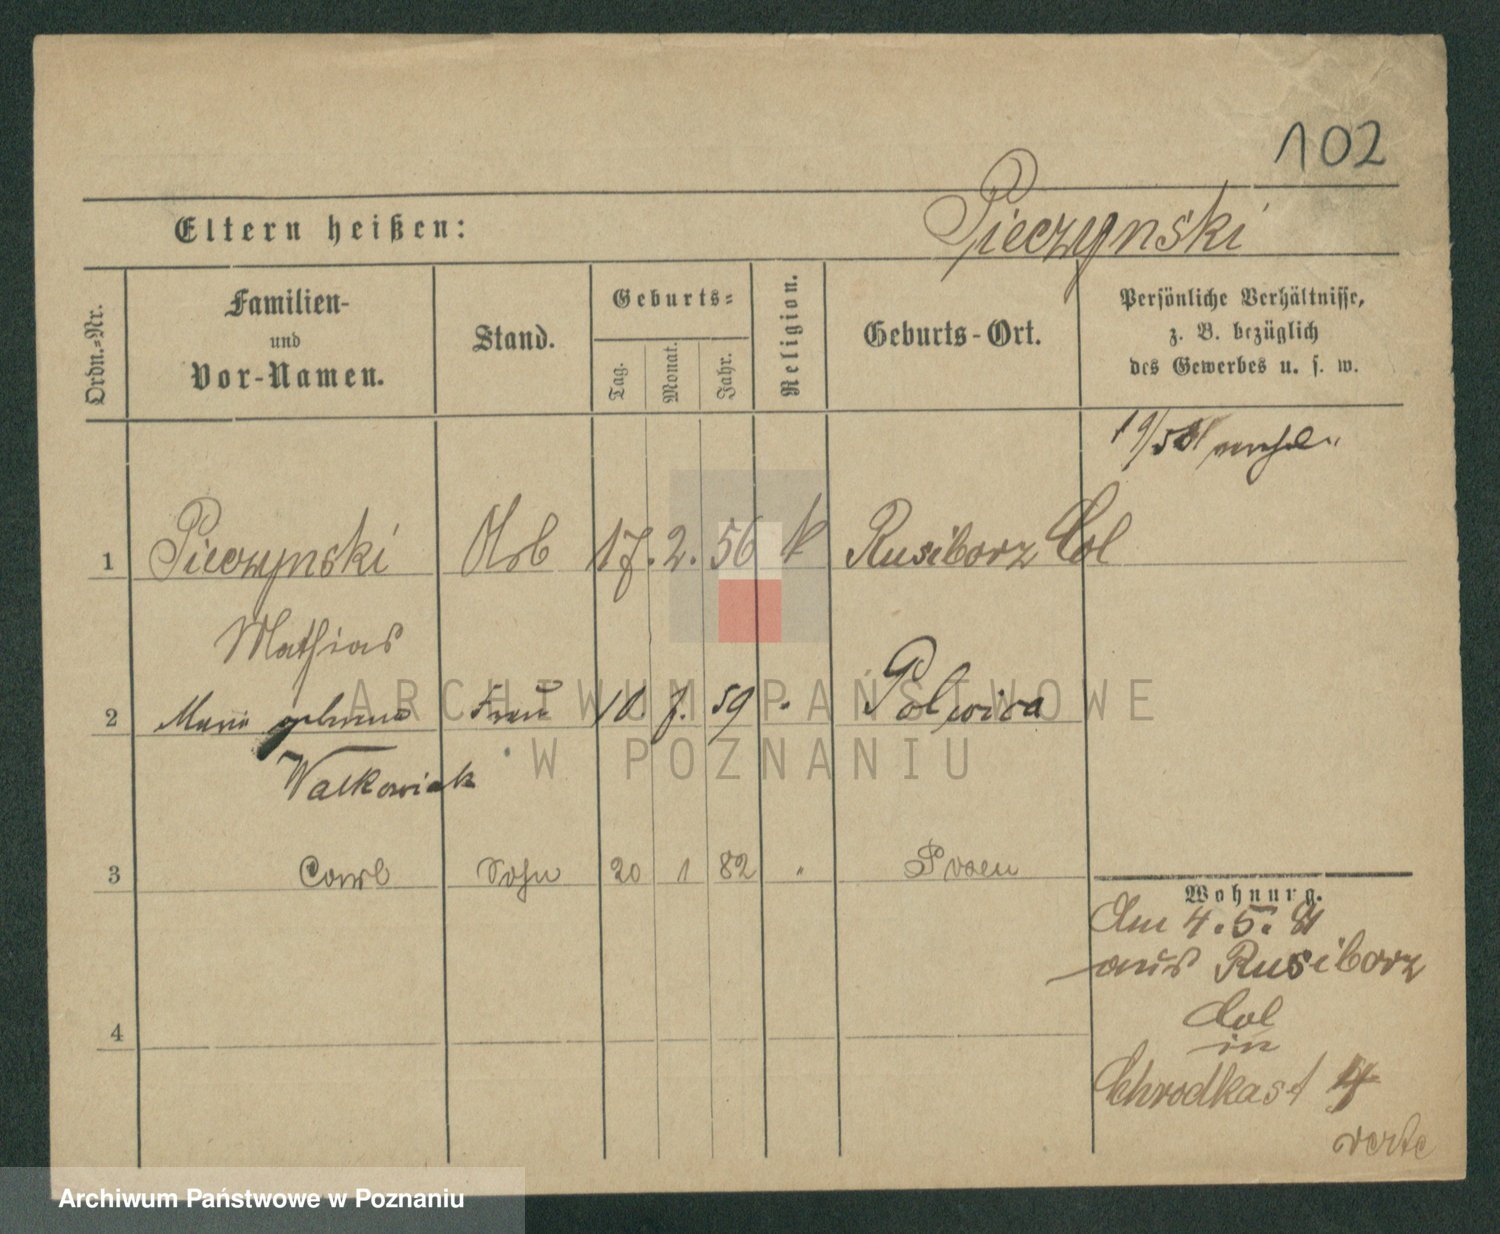 102
Eltern heißen: Pieczynski
Ordn.-Nr. Familien- und Vor-Namen. Stand. Geburts- Tag. Monat. Jahr. Religion. Geburts-Ort. Persönliche Verhältnisse, z. B. bezüglich des Gewerbes u. s. w.
1 Pieczynski Arb 17. 2. 56 k Rusiborz Col
Mathias
2 Marie geborene Frau 10. 7. 59 " Polwica
Walkowiak
3 Carl Sohn 20 1 82 " Posen
Wohnung.
Am 4. 5. 81
aus Rusiborz
Col
in
Schrodkast 4
verte
4
ARCHIWUM PAŃSTWOWE
W POZNANIU
Archiwum Państwowe w Poznaniu